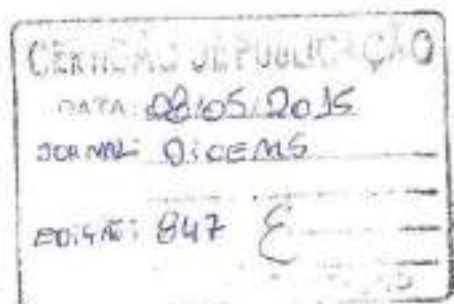 CERTIDÃO DE PUBLICAÇÃO
DATA: 08/05/2015
JORNAL: DiCEMS
EDIÇÃO: 847